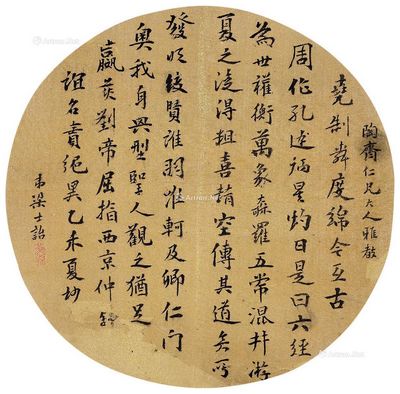 陶齋仁兄大人雅教
堯制舜度綿今亙古
周作孔述炳星灼日是曰六經
為世權衡萬象森羅五常混并游
夏之得粗喪精空傳其道奚所
發明後賢誰羽惟軻及卿仁門
奧我身典型聖人觀之猶足
嬴劉帝屈指西京仲舒
誼名責絕異乙未夏抄
弟梁士詒